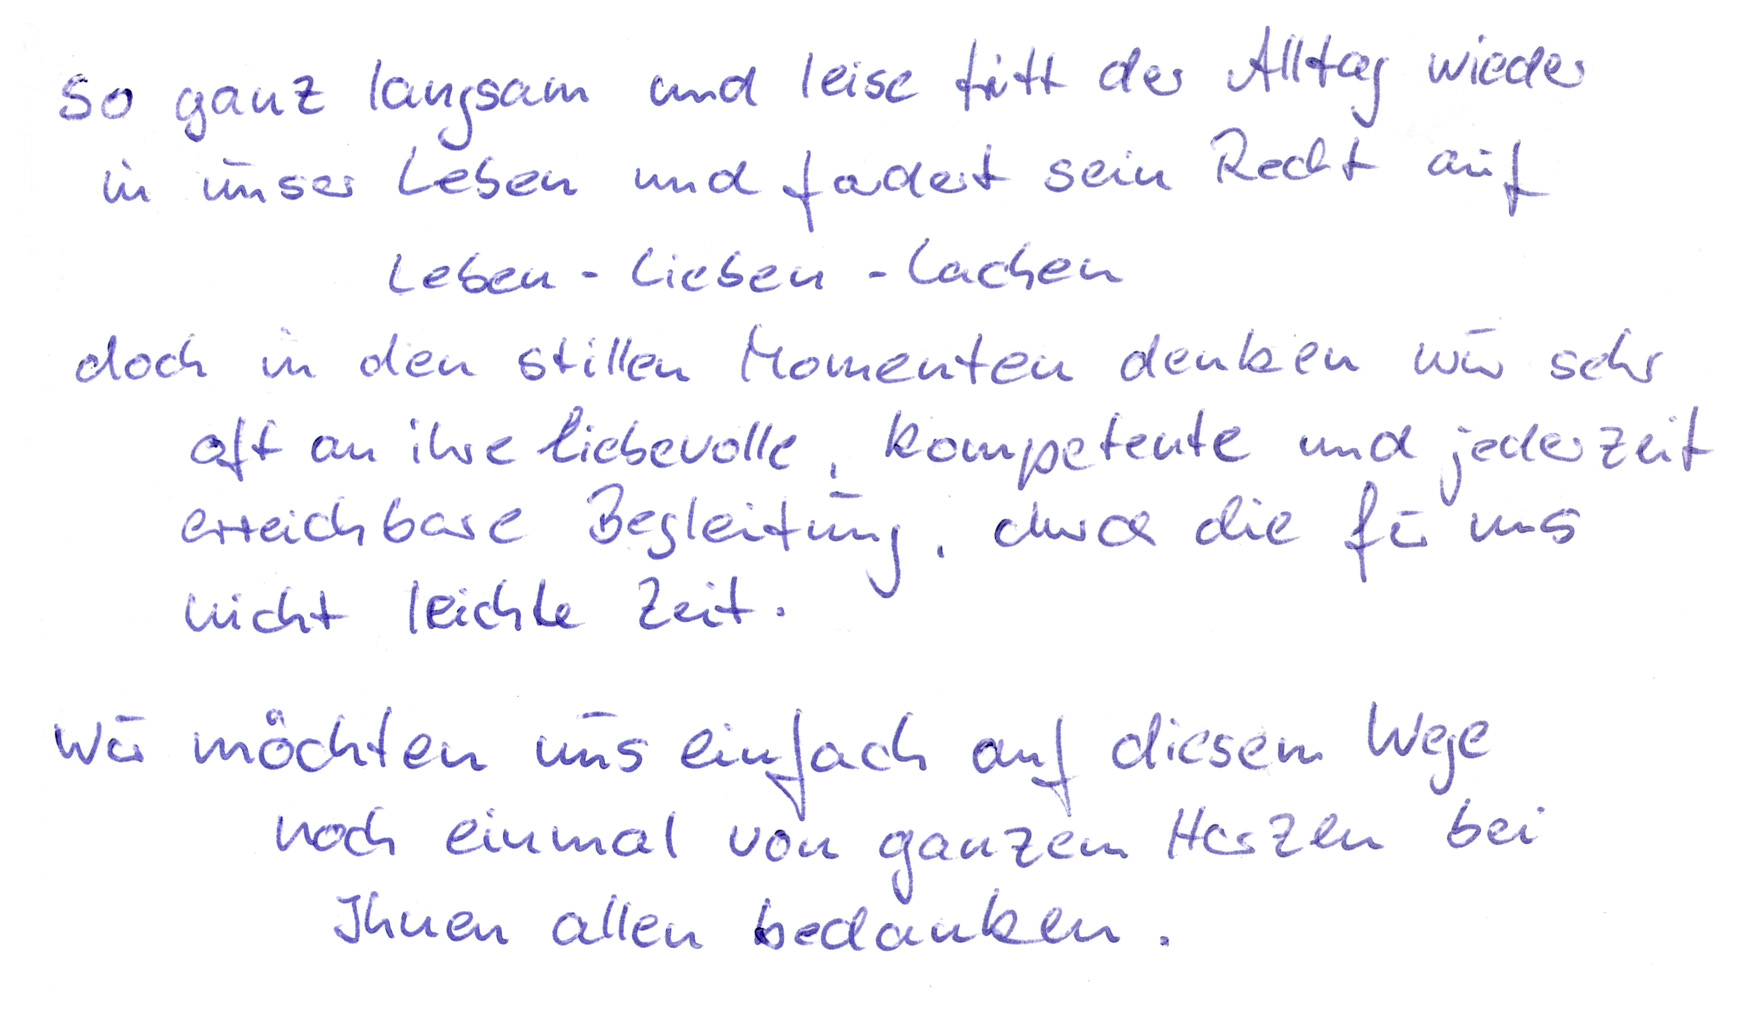 So ganz langsam und leise tritt der Alltag wieder
in unser Leben und fordert sein Recht auf
Leben - Lieben - Lachen
doch in den stillen Momenten denken wir sehr
oft an ihre liebevolle, kompetente und jederzeit
erreichbare Begleitung, durch die für uns
nicht leichte Zeit.
Wir möchten uns einfach auf diesem Wege
noch einmal von ganzem Herzen bei
Ihnen allen bedanken.